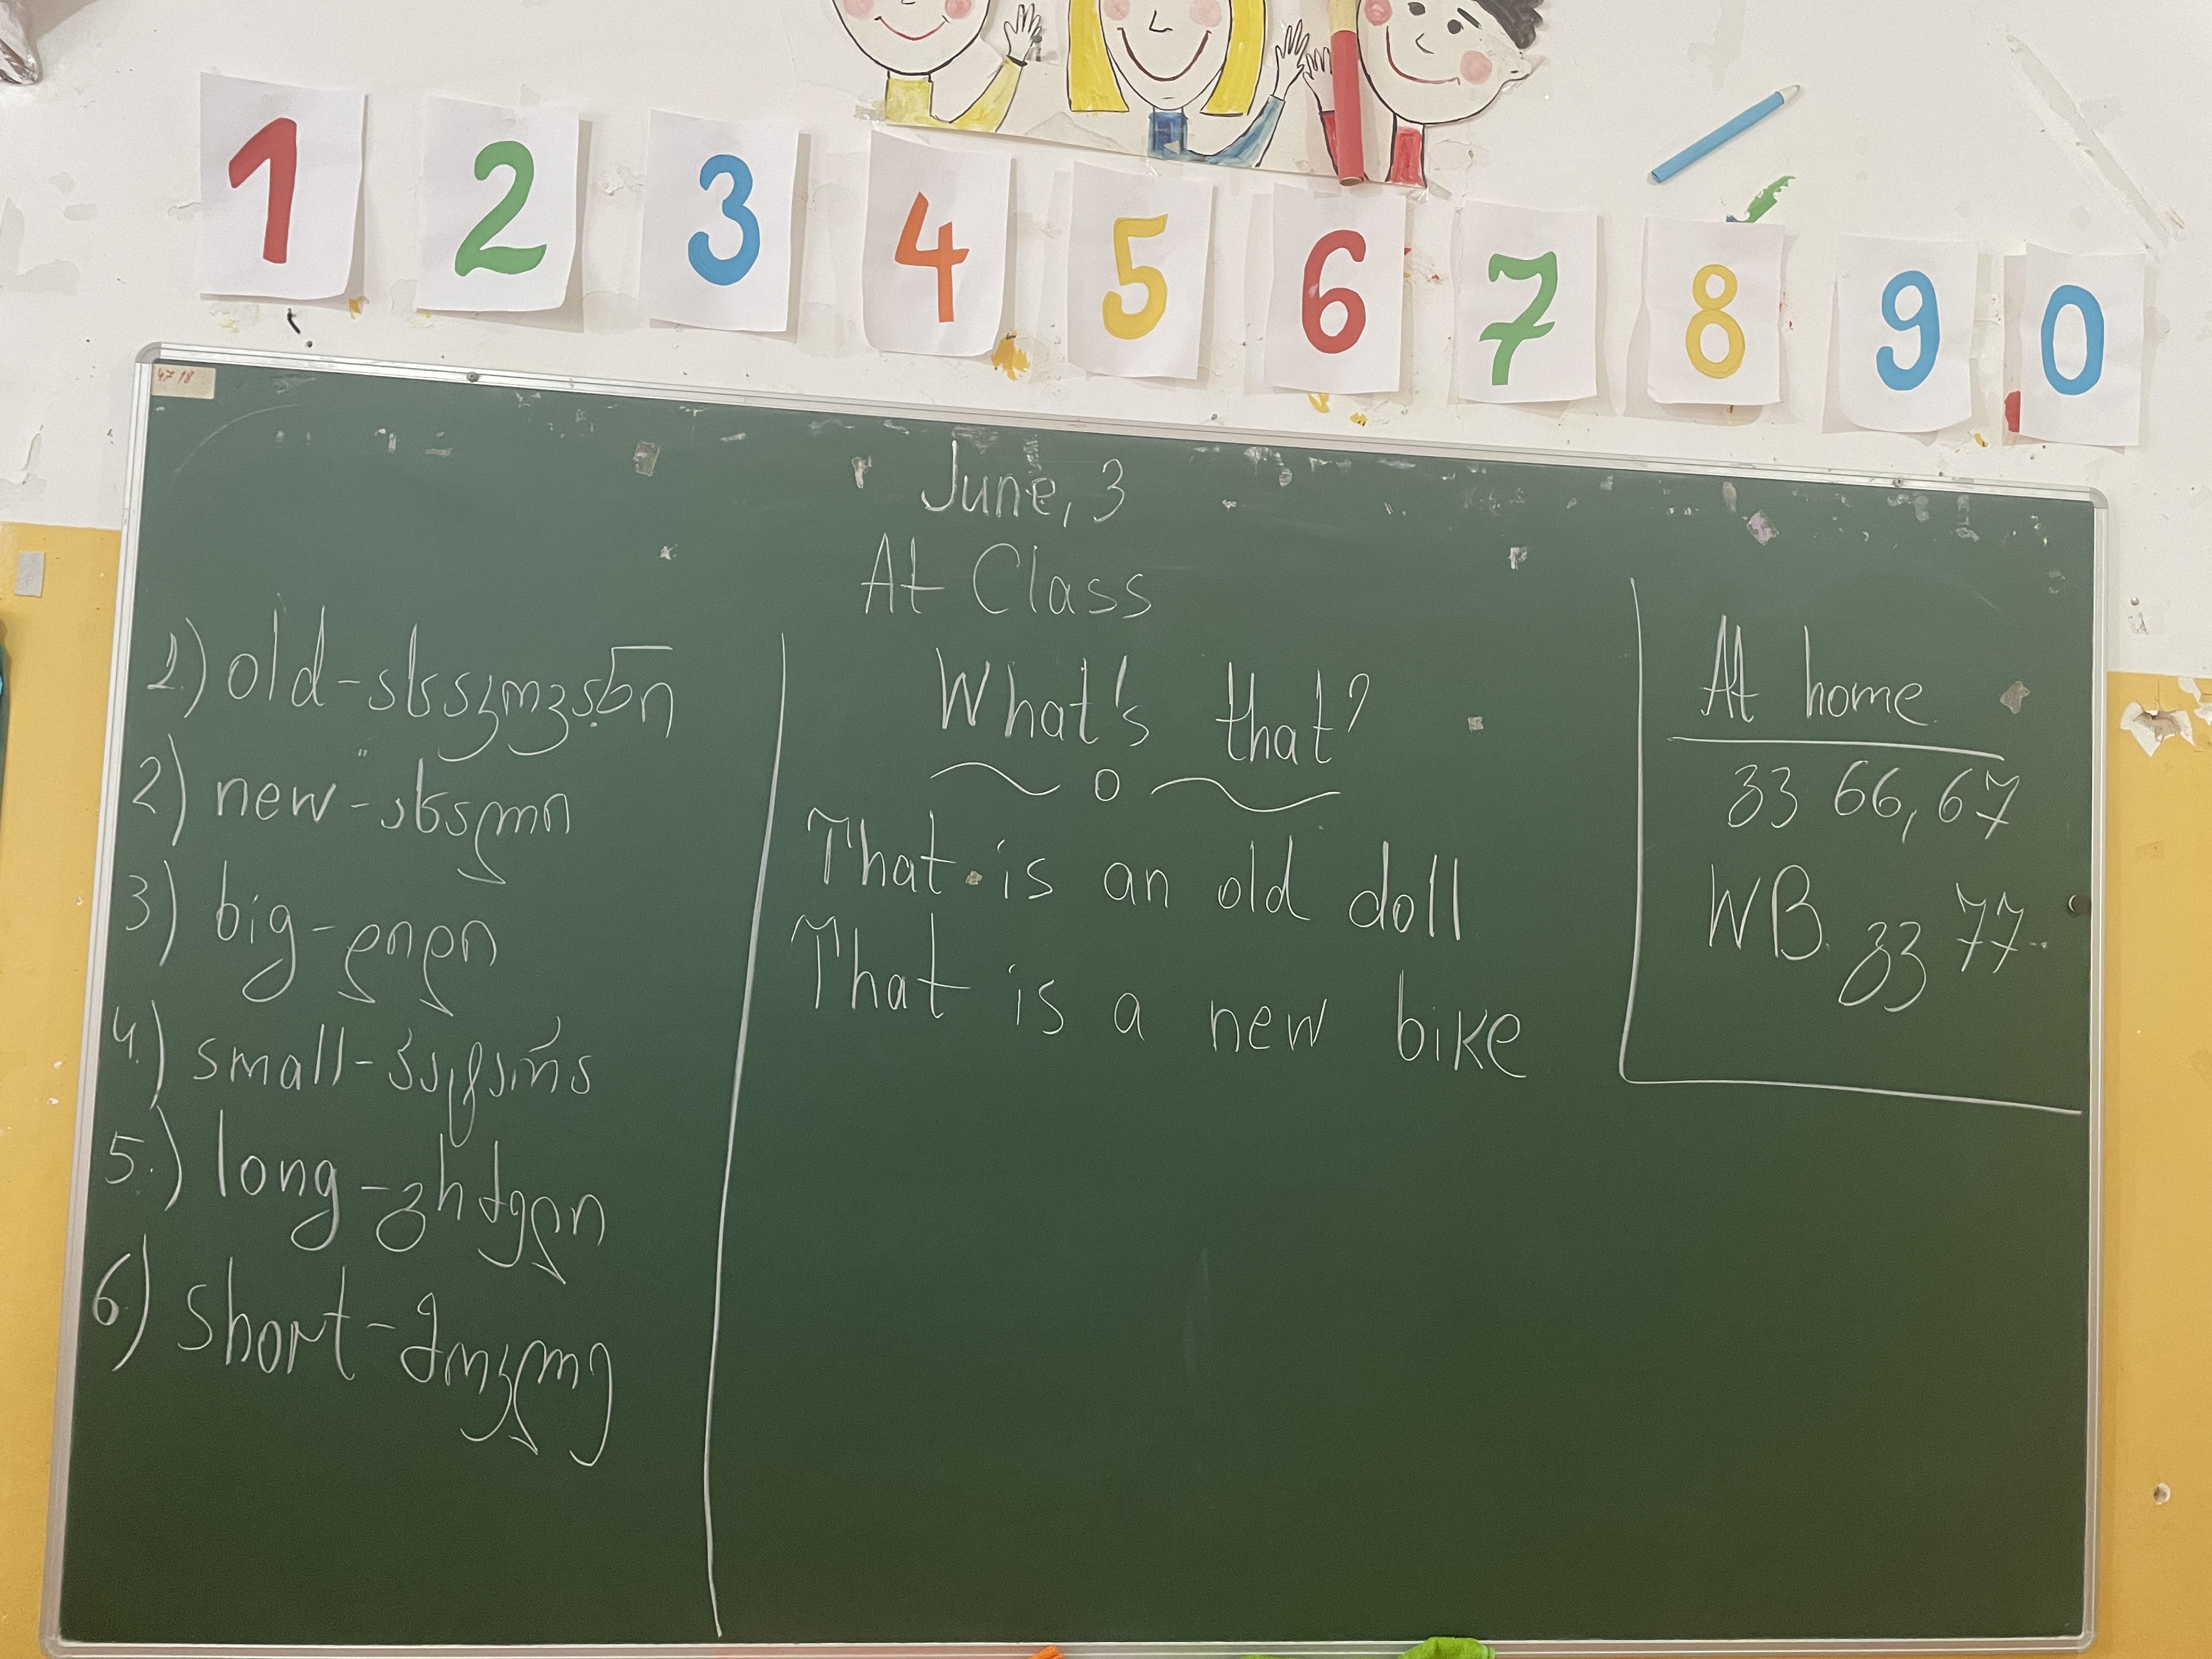 1 2 3 4 5 6 7 8 9 0
47 18
June, 3
At Class
1.) old-ახალგაზრდა
2) new-ახალი
3) big-დიდი
4.) small-პატარა
5.) long-გრძელი
6.) short-მოკლე
What's that?
That is an old doll
That is a new bike
At home
გვ 66, 67
WB. გვ 77